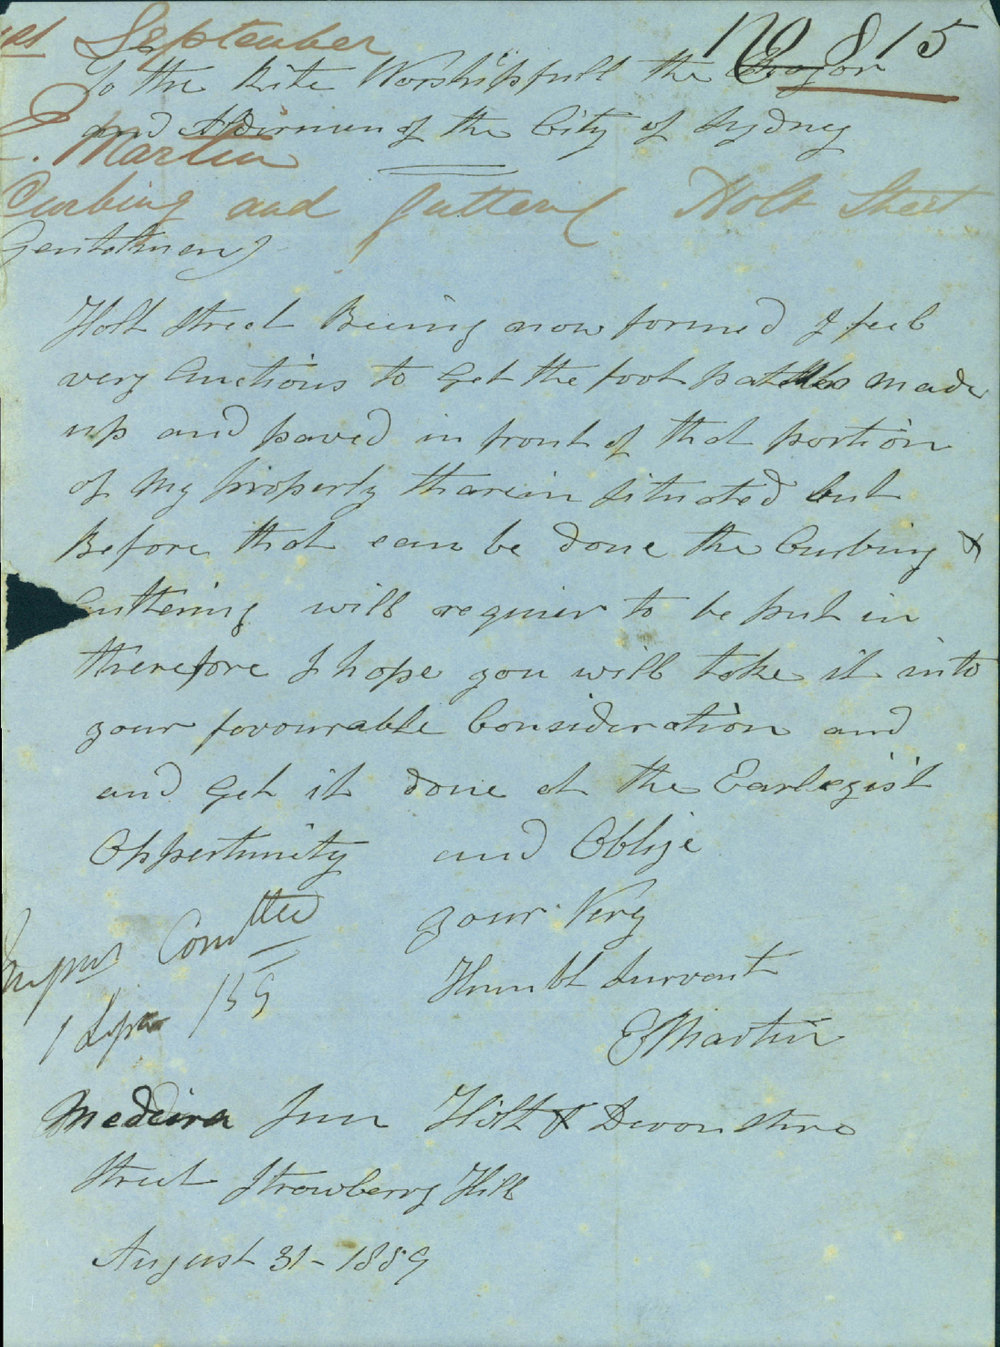 1st September
No 815
To the Rite Worshipfull the Mayor
and Aldirmen of the City of Sydney
E. Martin
Curbing and Guttering Holt Street
Gentelmen
Holt Street Being now formed I feel
very Anctious to Get the foot paths made
up and paved in front of that portion
of My property tharein situated but
Before that can be done the Curbing &
Guttering will requier to be put in
therefore I hope you will take it into
your favourable Consideration and
and Get it done at the Earlegist
Oppertunity and Oblige
your Very
Humbl Survant
E Martin
Comttee
1 Sepr /59
Medeira Inn Holt & Devonshire
Street Strowberry Hill
August 31 - 1859